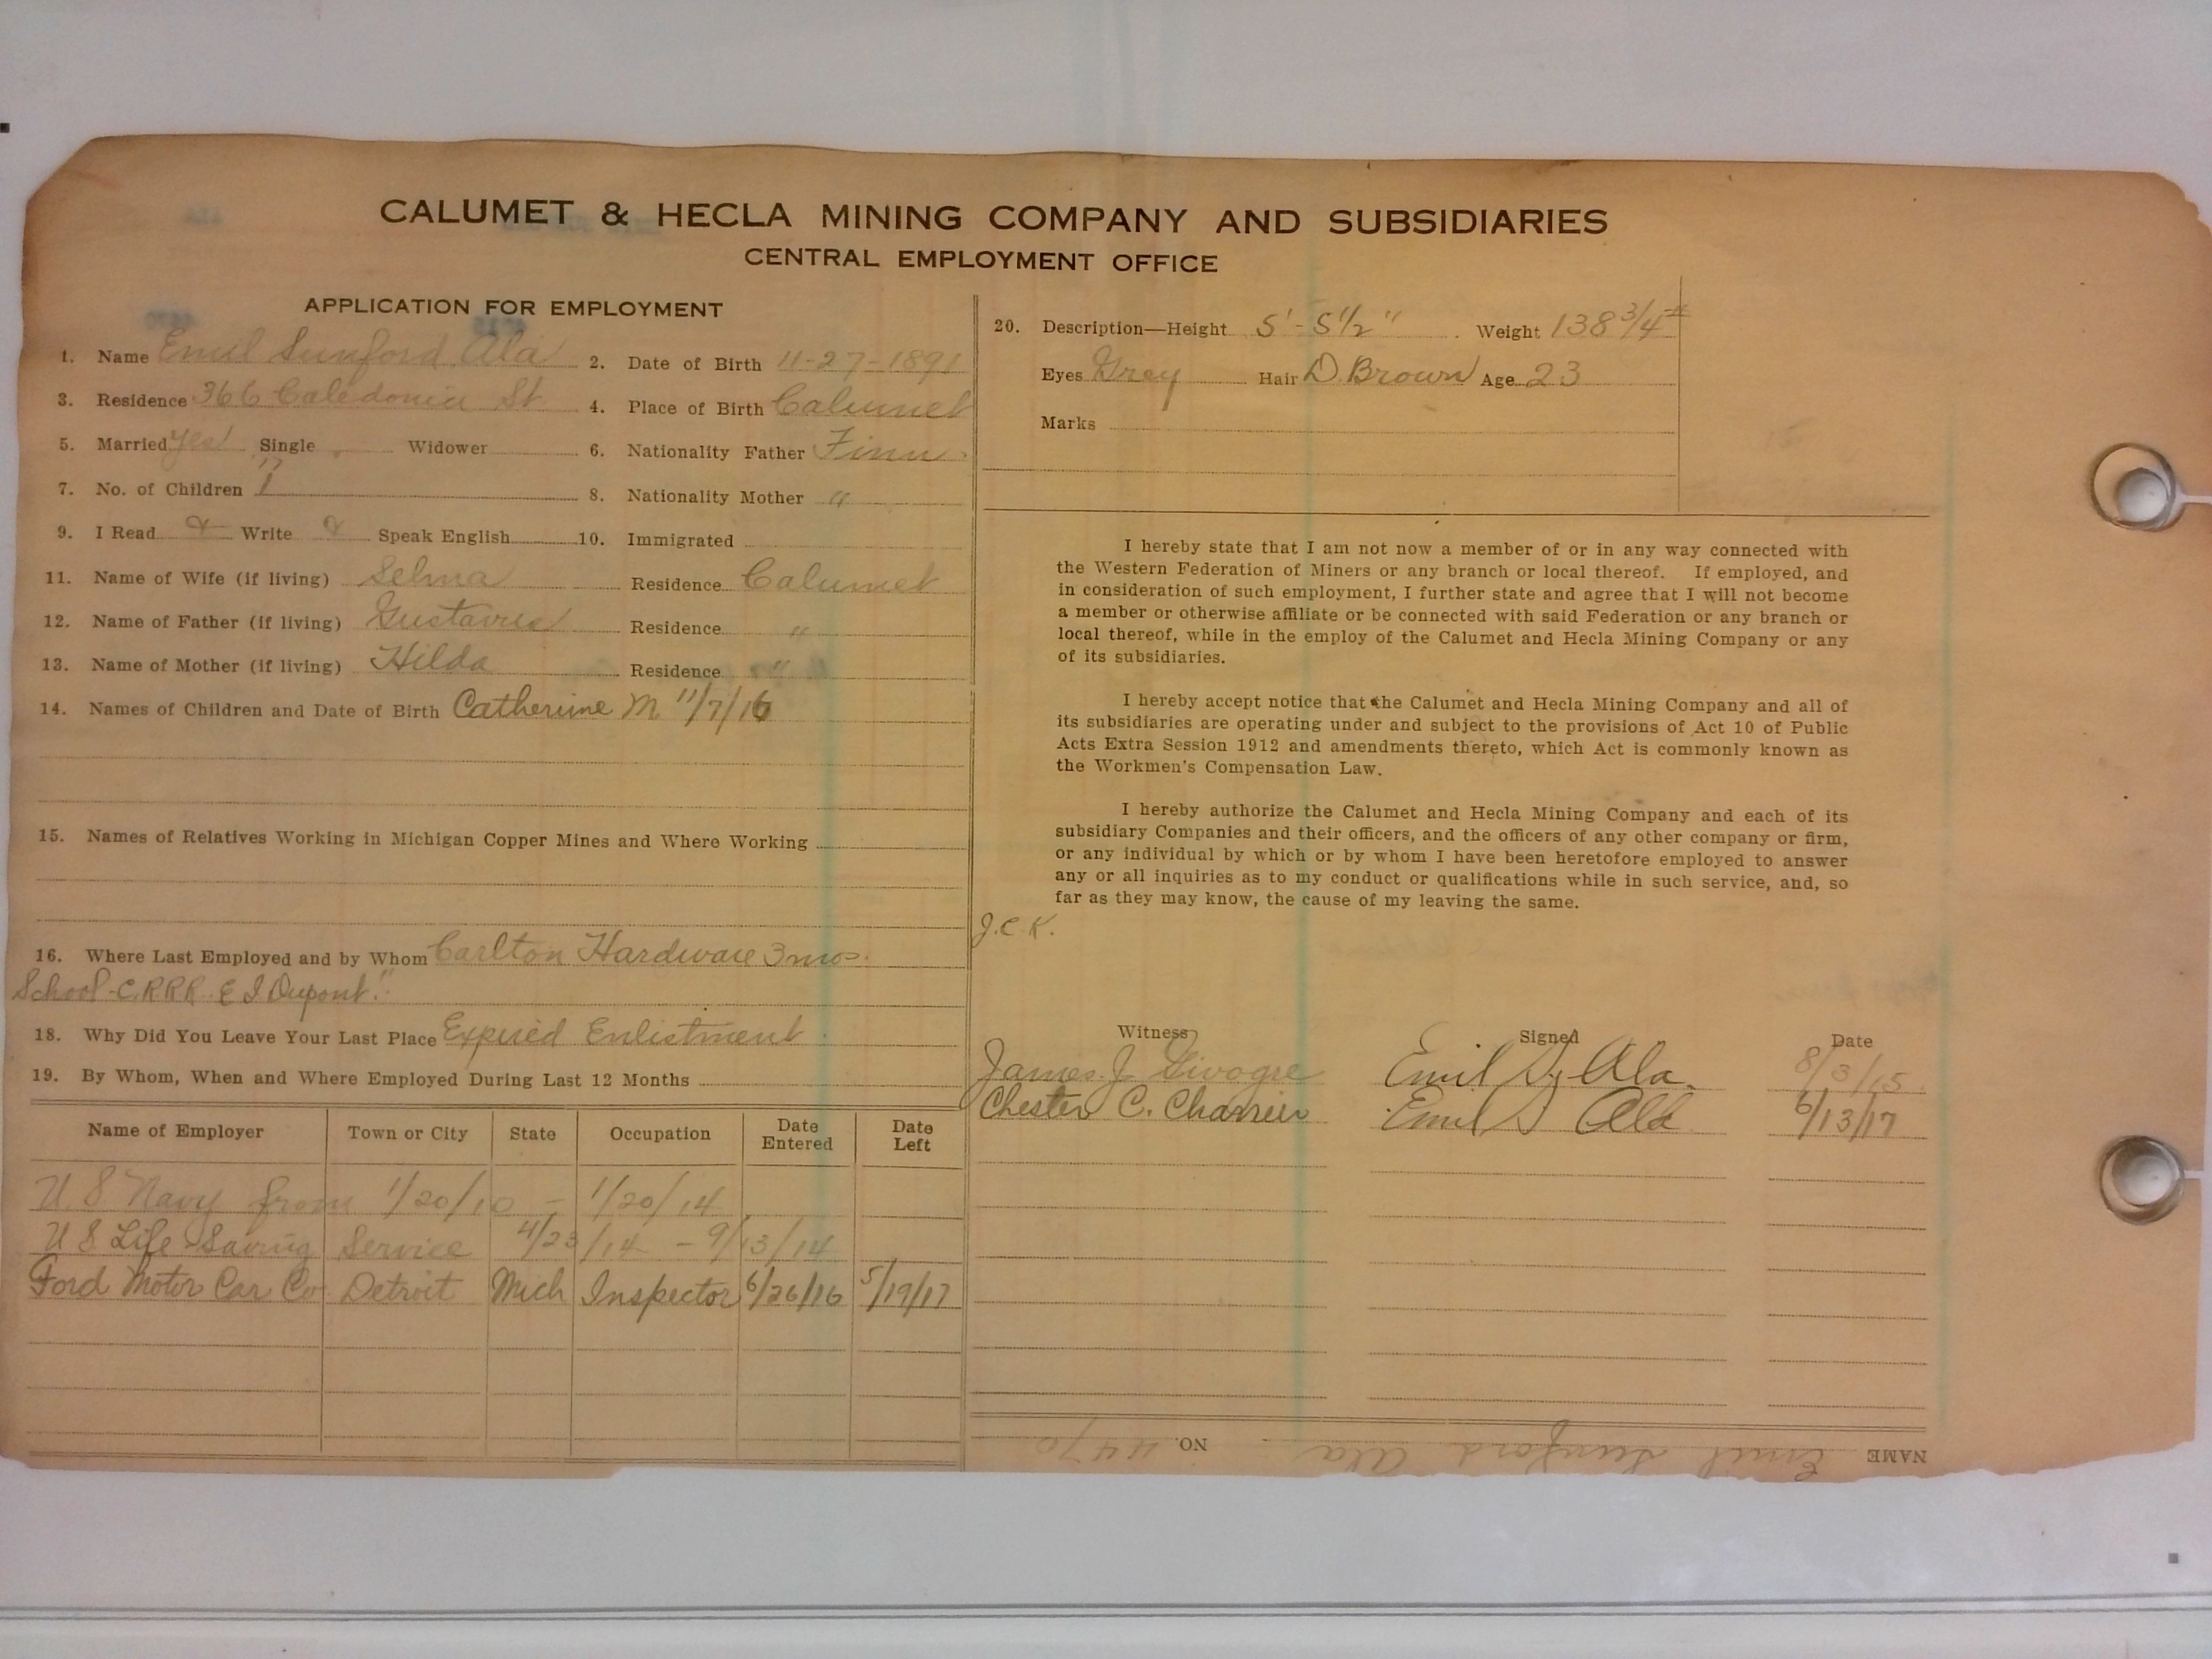 CALUMET & HECLA MINING COMPANY AND SUBSIDIARIES
CENTRAL EMPLOYMENT OFFICE
APPLICATION FOR EMPLOYMENT
1. Name Emil Sunford Ala 2. Date of Birth 11-27-1891
3. Residence 366 Caledonia St 4. Place of Birth Calumet
5. Married yes Single Widower 6. Nationality Father Finn
7. No. of Children 1 8. Nationality Mother "
9. I Read & Write & Speak English 10. Immigrated
11. Name of Wife (if living) Selma Residence Calumet
12. Name of Father (if living) Gustavus Residence "
13. Name of Mother (if living) Hilda Residence "
14. Names of Children and Date of Birth Catherine M 11/7/16
15. Names of Relatives Working in Michigan Copper Mines and Where Working
16. Where Last Employed and by Whom Carlton Hardware 3 mos.
School - C.R.R.R. E I Dupont. "
18. Why Did You Leave Your Last Place Expired Enlistment
19. By Whom, When and Where Employed During Last 12 Months
Name of Employer Town or City State Occupation Date Entered Date Left
U S Navy from 1/20/10 - 1/20/14
U S Life-Saving Service 4/23/14 - 9/13/14
Ford Motor Car Co Detroit Mich Inspector 6/26/16 5/19/17
20. Description—Height 5'-5 1/2" Weight 138 3/4 #
Eyes Grey Hair D. Brown Age 23
Marks
I hereby state that I am not now a member of or in any way connected with
the Western Federation of Miners or any branch or local thereof. If employed, and
in consideration of such employment, I further state and agree that I will not become
a member or otherwise affiliate or be connected with said Federation or any branch or
local thereof, while in the employ of the Calumet and Hecla Mining Company or any
of its subsidiaries.
I hereby accept notice that the Calumet and Hecla Mining Company and all of
its subsidiaries are operating under and subject to the provisions of Act 10 of Public
Acts Extra Session 1912 and amendments thereto, which Act is commonly known as
the Workmen's Compensation Law.
I hereby authorize the Calumet and Hecla Mining Company and each of its
subsidiary Companies and their officers, and the officers of any other company or firm,
or any individual by which or by whom I have been heretofore employed to answer
any or all inquiries as to my conduct or qualifications while in such service, and, so
far as they may know, the cause of my leaving the same.
J.C.K.
Witness Signed Date
James J. Emil S. Ala. 8/3/15
Chester C. Emil S Ala 6/13/17
NAME Emil Sunford Ala NO. 4470